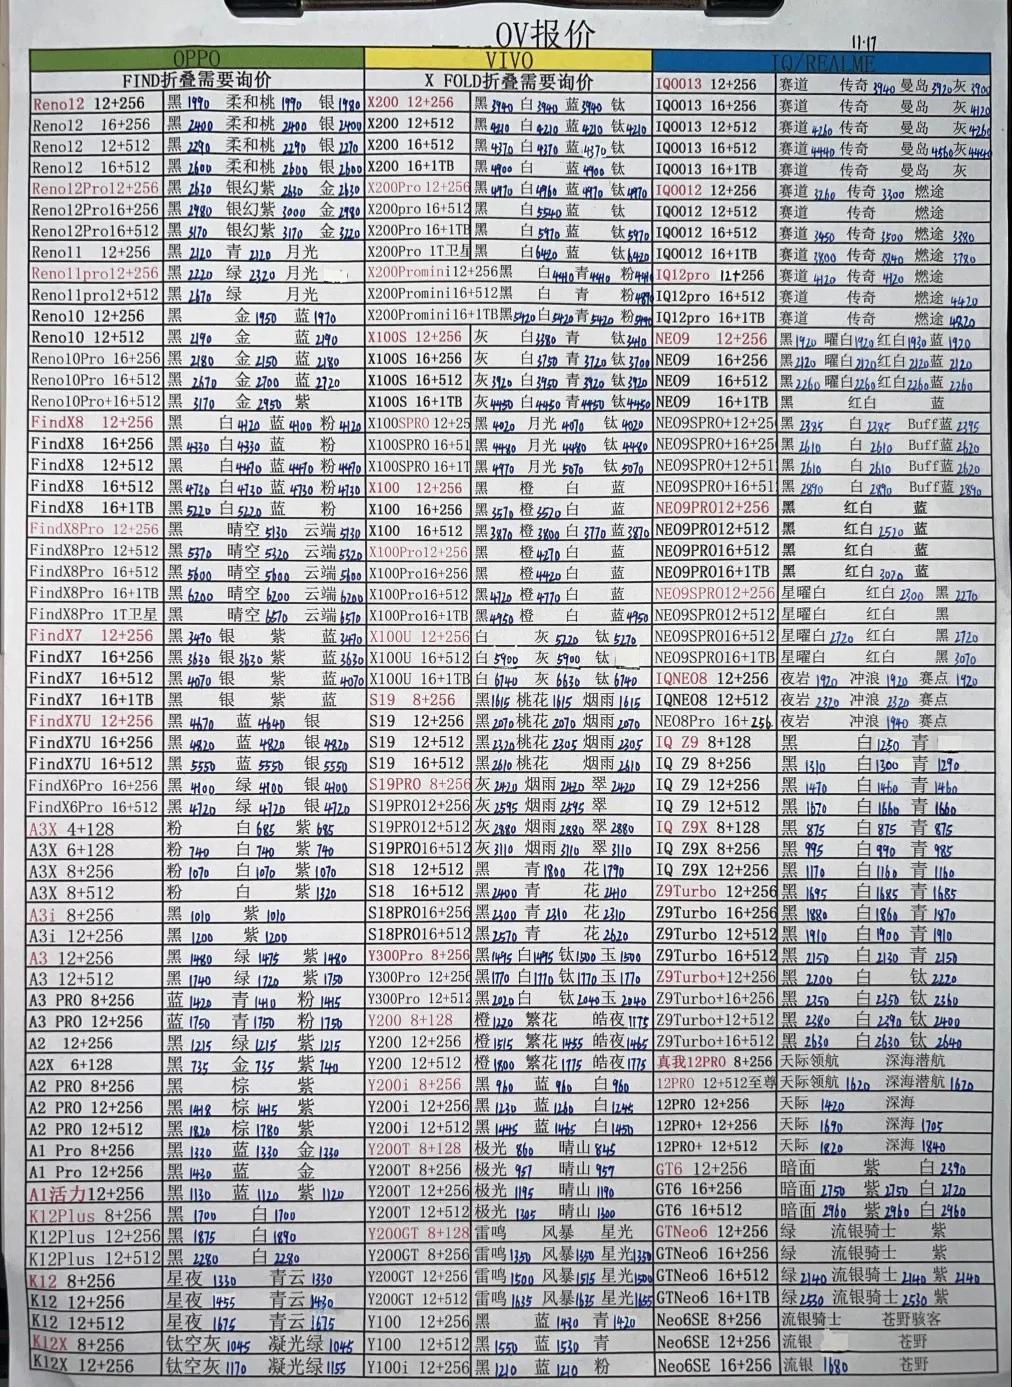 OV报价
11.17
OPPO
FIND折叠需要询价
Reno12 12+256 黑1990 柔和桃1990 银1980
Reno12 16+256 黑2400 柔和桃2400 银2400
Reno12 12+512 黑2290 柔和桃2290 银2270
Reno12 16+512 黑2600 柔和桃2600 银2600
Reno12Pro12+256 黑2630 银幻紫2630 金2630
Reno12Pro16+256 黑2980 银幻紫3000 金2980
Reno12Pro16+512 黑3170 银幻紫3170 金3220
Reno11 12+256 黑2120 青2120 月光
Reno11pro12+256 黑2220 绿2320 月光
Reno11pro12+512 黑2670 绿 月光
Reno10 12+256 黑 金1950 蓝1970
Reno10 12+512 黑2190 金 蓝2190
Reno10Pro 16+256 黑2180 金2150 蓝2180
Reno10Pro 16+512 黑2670 金2700 蓝2720
Reno10Pro+16+512 黑3170 金2950 紫
FindX8 12+256 黑 白4120 蓝4100 粉4120
FindX8 16+256 黑4330 白4330 蓝 粉
FindX8 12+512 黑 白4470 蓝4470 粉4470
FindX8 16+512 黑4730 白4730 蓝4730 粉4730
FindX8 16+1TB 黑5220 白5220 蓝 粉
FindX8Pro 12+256 黑 晴空5130 云端5130
FindX8Pro 12+512 黑5370 晴空5320 云端5320
FindX8Pro 16+512 黑5600 晴空5600 云端5600
FindX8Pro 16+1TB 黑6200 晴空6200 云端6200
FindX8Pro 1T卫星 黑 晴空6570 云端6570
FindX7 12+256 黑3470 银 紫 蓝3470
FindX7 16+256 黑3630 银3630 紫 蓝3630
FindX7 16+512 黑4070 银4070 紫 蓝4070
FindX7 16+1TB 黑 银 紫 蓝
FindX7U 12+256 黑4670 蓝4640 银
FindX7U 16+256 黑4820 蓝4820 银4820
FindX7U 16+512 黑5550 蓝5550 银5550
FindX6Pro 16+256 黑4100 绿4100 银4100
FindX6Pro 16+512 黑4720 绿4720 银4720
A3X 4+128 粉 白685 紫685
A3X 6+128 粉740 白740 紫740
A3X 8+256 粉1070 白1070 紫1070
A3X 8+512 粉 白 紫1320
A3i 8+256 黑1010 紫1010
A3i 12+256 黑1200 紫1200
A3 12+256 黑1480 绿1475 紫1480
A3 12+512 黑1740 绿1720 紫1750
A3 PRO 8+256 蓝1420 青1410 粉1415
A3 PRO 12+256 蓝1750 青1750 粉1750
A2 12+256 黑1215 绿1215 紫1215
A2X 6+128 黑735 金735 紫740
A2 PRO 8+256 黑 棕 紫
A2 PRO 12+256 黑1418 棕1415 紫
A2 PRO 12+512 黑1820 棕1780 紫
A1 Pro 8+256 黑1330 蓝1330 金1330
A1 Pro 12+256 黑1430 蓝 金
A1活力12+256 黑1130 蓝1120 紫1120
K12Plus 8+256 黑1700 白1700
K12Plus 12+256 黑1875 白1890
K12Plus 12+512 黑2280 白2280
K12 8+256 星夜1330 青云1330
K12 12+256 星夜1455 青云1430
K12 12+512 星夜1675 青云1675
K12X 8+256 钛空灰1045 凝光绿1045
K12X 12+256 钛空灰1170 凝光绿1155
VIVO
X FOLD折叠需要询价
X200 12+256 黑3940 白3940 蓝3940 钛
X200 12+512 黑4210 白4210 蓝4210 钛4210
X200 16+512 黑4370 白4370 蓝4370 钛
X200 16+1TB 黑4900 白 蓝4900 钛
X200Pro 12+256 黑4970 白4960 蓝4970 钛4970
X200pro 16+512 黑 白5540 蓝 钛
X200Pro 16+1TB 黑 白5970 蓝 钛5970
X200Pro 1T卫星 黑 白6420 蓝 钛6420
X200Promini12+256黑 白4410 青4410 粉4410
X200Promini16+512黑 白 青 粉4890
X200Promini16+1TB黑5420 白5420 青5420 粉5440
X100S 12+256 灰 白3380 青 钛3410
X100S 16+256 黑 白3750 青3720 钛3700
X100S 16+512 灰3920 白3950 青3920 钛3920
X100S 16+1TB 灰4450 白4450 青4450 钛4450
X100SPRO 12+25 黑4020 月光4070 钛4020
X100SPRO 16+51 黑4480 月光4480 钛4480
X100SPRO 16+1T 黑4970 月光5070 钛5070
X100 12+256 黑 橙 白 蓝
X100 16+256 黑3570 橙3520 白 蓝
X100 16+512 黑3870 橙3800 白3770 蓝3870
X100Pro12+256 黑 橙4270 白 蓝
X100Pro16+256 黑 橙4420 白 蓝
X100Pro16+512 黑4720 橙4770 白 蓝
X100Pro16+1TB 黑4950 橙 白 蓝4950
X100U 12+256 白 灰5220 钛5270
X100U 16+512 白5900 灰5900 钛
X100U 16+1TB 白6740 灰6630 钛6740
S19 8+256 黑1615 桃花1615 烟雨1615
S19 12+256 黑2070 桃花2070 烟雨2070
S19 12+512 黑2320 桃花2305 烟雨2305
S19 16+512 黑2610 桃花 烟雨2610
S19PRO 8+256 灰2420 烟雨2420 翠2420
S19PRO12+256 灰2595 烟雨2595 翠
S19PRO12+512 灰2880 烟雨2880 翠2880
S19PRO16+512 灰3110 烟雨3110 翠3110
S18 12+512 黑 青1800 花1790
S18 16+512 黑2400 青 花2410
S18PRO16+256 黑2300 青2310 花2310
S18PRO16+512 黑2570 青 花2620
Y300Pro 8+256 黑1495 白1495 钛1500 玉1500
Y300Pro 12+256 黑1770 白1770 钛1770 玉1770
Y300Pro 12+512 黑2020 白 钛2040 玉2040
Y200 8+128 橙1220 繁花 皓夜1175
Y200 12+256 橙1515 繁花1455 皓夜1465
Y200 12+512 橙1800 繁花1775 皓夜1775
Y200i 8+256 黑960 蓝960 白960
Y200i 12+256 黑1230 蓝1260 白1245
Y200i 12+512 黑1445 蓝1465 白1450
Y200T 8+128 极光860 晴山845
Y200T 8+256 极光957 晴山957
Y200T 12+256 极光1195 晴山1190
Y200T 12+512 极光1305 晴山1300
Y200GT 8+128 雷鸣 风暴 星光
Y200GT 8+256 雷鸣1350 风暴1350 星光1350
Y200GT 12+256 雷鸣1500 风暴1515 星光1500
Y200GT 12+512 雷鸣1635 风暴1635 星光1655
Y100 12+256 黑 蓝1430 青1420
Y100 12+512 黑1550 蓝1530 青
Y100i 12+256 黑1210 蓝1210 粉
IQ/REALME
IQ0013 12+256 赛道 传奇3940 曼岛3920 灰3900
IQ0013 16+256 赛道 传奇 曼岛 灰4120
IQ0013 12+512 赛道4260 传奇 曼岛 灰4260
IQ0013 16+512 赛道4440 传奇 曼岛4560 灰4440
IQ0013 16+1TB 赛道 传奇 曼岛 灰
IQ0012 12+256 赛道3260 传奇3300 燃途
IQ0012 12+512 赛道 传奇 燃途
IQ0012 16+512 赛道3450 传奇3500 燃途3380
IQ0012 16+1TB 赛道3800 传奇3840 燃途3780
IQ12pro 12+256 赛道4120 传奇4120 燃途
IQ12pro 16+512 赛道 传奇 燃途4420
IQ12pro 16+1TB 赛道 传奇 燃途4820
NEO9 12+256 黑1920 曜白1920 红白1930 蓝1920
NEO9 16+256 黑2120 曜白2120 红白2120 蓝2120
NEO9 16+512 黑2260 曜白2260 红白2260 蓝2260
NEO9 16+1TB 黑 红白 蓝
NEO9SPRO+12+25 黑2385 白2385 Buff蓝2395
NEO9SPRO+16+25 黑2610 白2610 Buff蓝2620
NEO9SPRO+12+51 黑2610 白2610 Buff蓝2620
NEO9SPRO+16+51 黑2890 白2890 Buff蓝2890
NEO9PRO12+256 黑 红白 蓝
NEO9PRO12+512 黑 红白2510 蓝
NEO9PRO16+512 黑 红白 蓝
NEO9PRO16+1TB 黑 红白3070 蓝
NEO9SPRO12+256 星曜白 红白2300 黑2270
NEO9SPRO12+512 星曜白 红白 黑
NEO9SPRO16+512 星曜白2720 红白 黑2720
NEO9SPRO16+1TB 星曜白 红白 黑3070
IQNEO8 12+256 夜岩1920 冲浪1920 赛点1920
IQNEO8 12+512 夜岩2320 冲浪2320 赛点
NEO8Pro 16+256 夜岩 冲浪1940 赛点
IQ Z9 8+128 黑 白1250 青
IQ Z9 8+256 黑1310 白1300 青1290
IQ Z9 12+256 黑1470 白1460 青1460
IQ Z9 12+512 黑1670 白1660 青1660
IQ Z9X 8+128 黑875 白875 青875
IQ Z9X 8+256 黑995 白990 青985
IQ Z9X 12+256 黑1170 白1160 青1160
Z9Turbo 12+256 黑1695 白1685 青1685
Z9Turbo 16+256 黑1880 白1860 青1870
Z9Turbo 12+512 黑1910 白1900 青1910
Z9Turbo 16+512 黑2150 白2130 青2150
Z9Turbo+12+256 黑2200 白 钛2220
Z9Turbo+16+256 黑2350 白2350 钛2360
Z9Turbo+12+512 黑2380 白2390 钛2400
Z9Turbo+16+512 黑2630 白2630 钛2640
真我12PRO 8+256 天际领航 深海潜航
12PRO 12+512至尊 天际领航1620 深海潜航1620
12PRO 12+256 天际1420 深海
12PRO+ 12+256 天际1690 深海1705
12PRO+ 12+512 天际1820 深海1840
GT6 12+256 暗面 紫 白2390
GT6 16+256 暗面2750 紫2750 白2720
GT6 16+512 暗面2960 紫2960 白2960
GTNeo6 12+256 绿 流银骑士 紫
GTNeo6 16+256 绿 流银骑士 紫
GTNeo6 16+512 绿2140 流银骑士2140 紫2140
GTNeo6 16+1TB 绿2530 流银骑士2530 紫
Neo6SE 8+256 流银骑士 苍野骇客
Neo6SE 12+256 流银 苍野
Neo6SE 16+256 流银1680 苍野